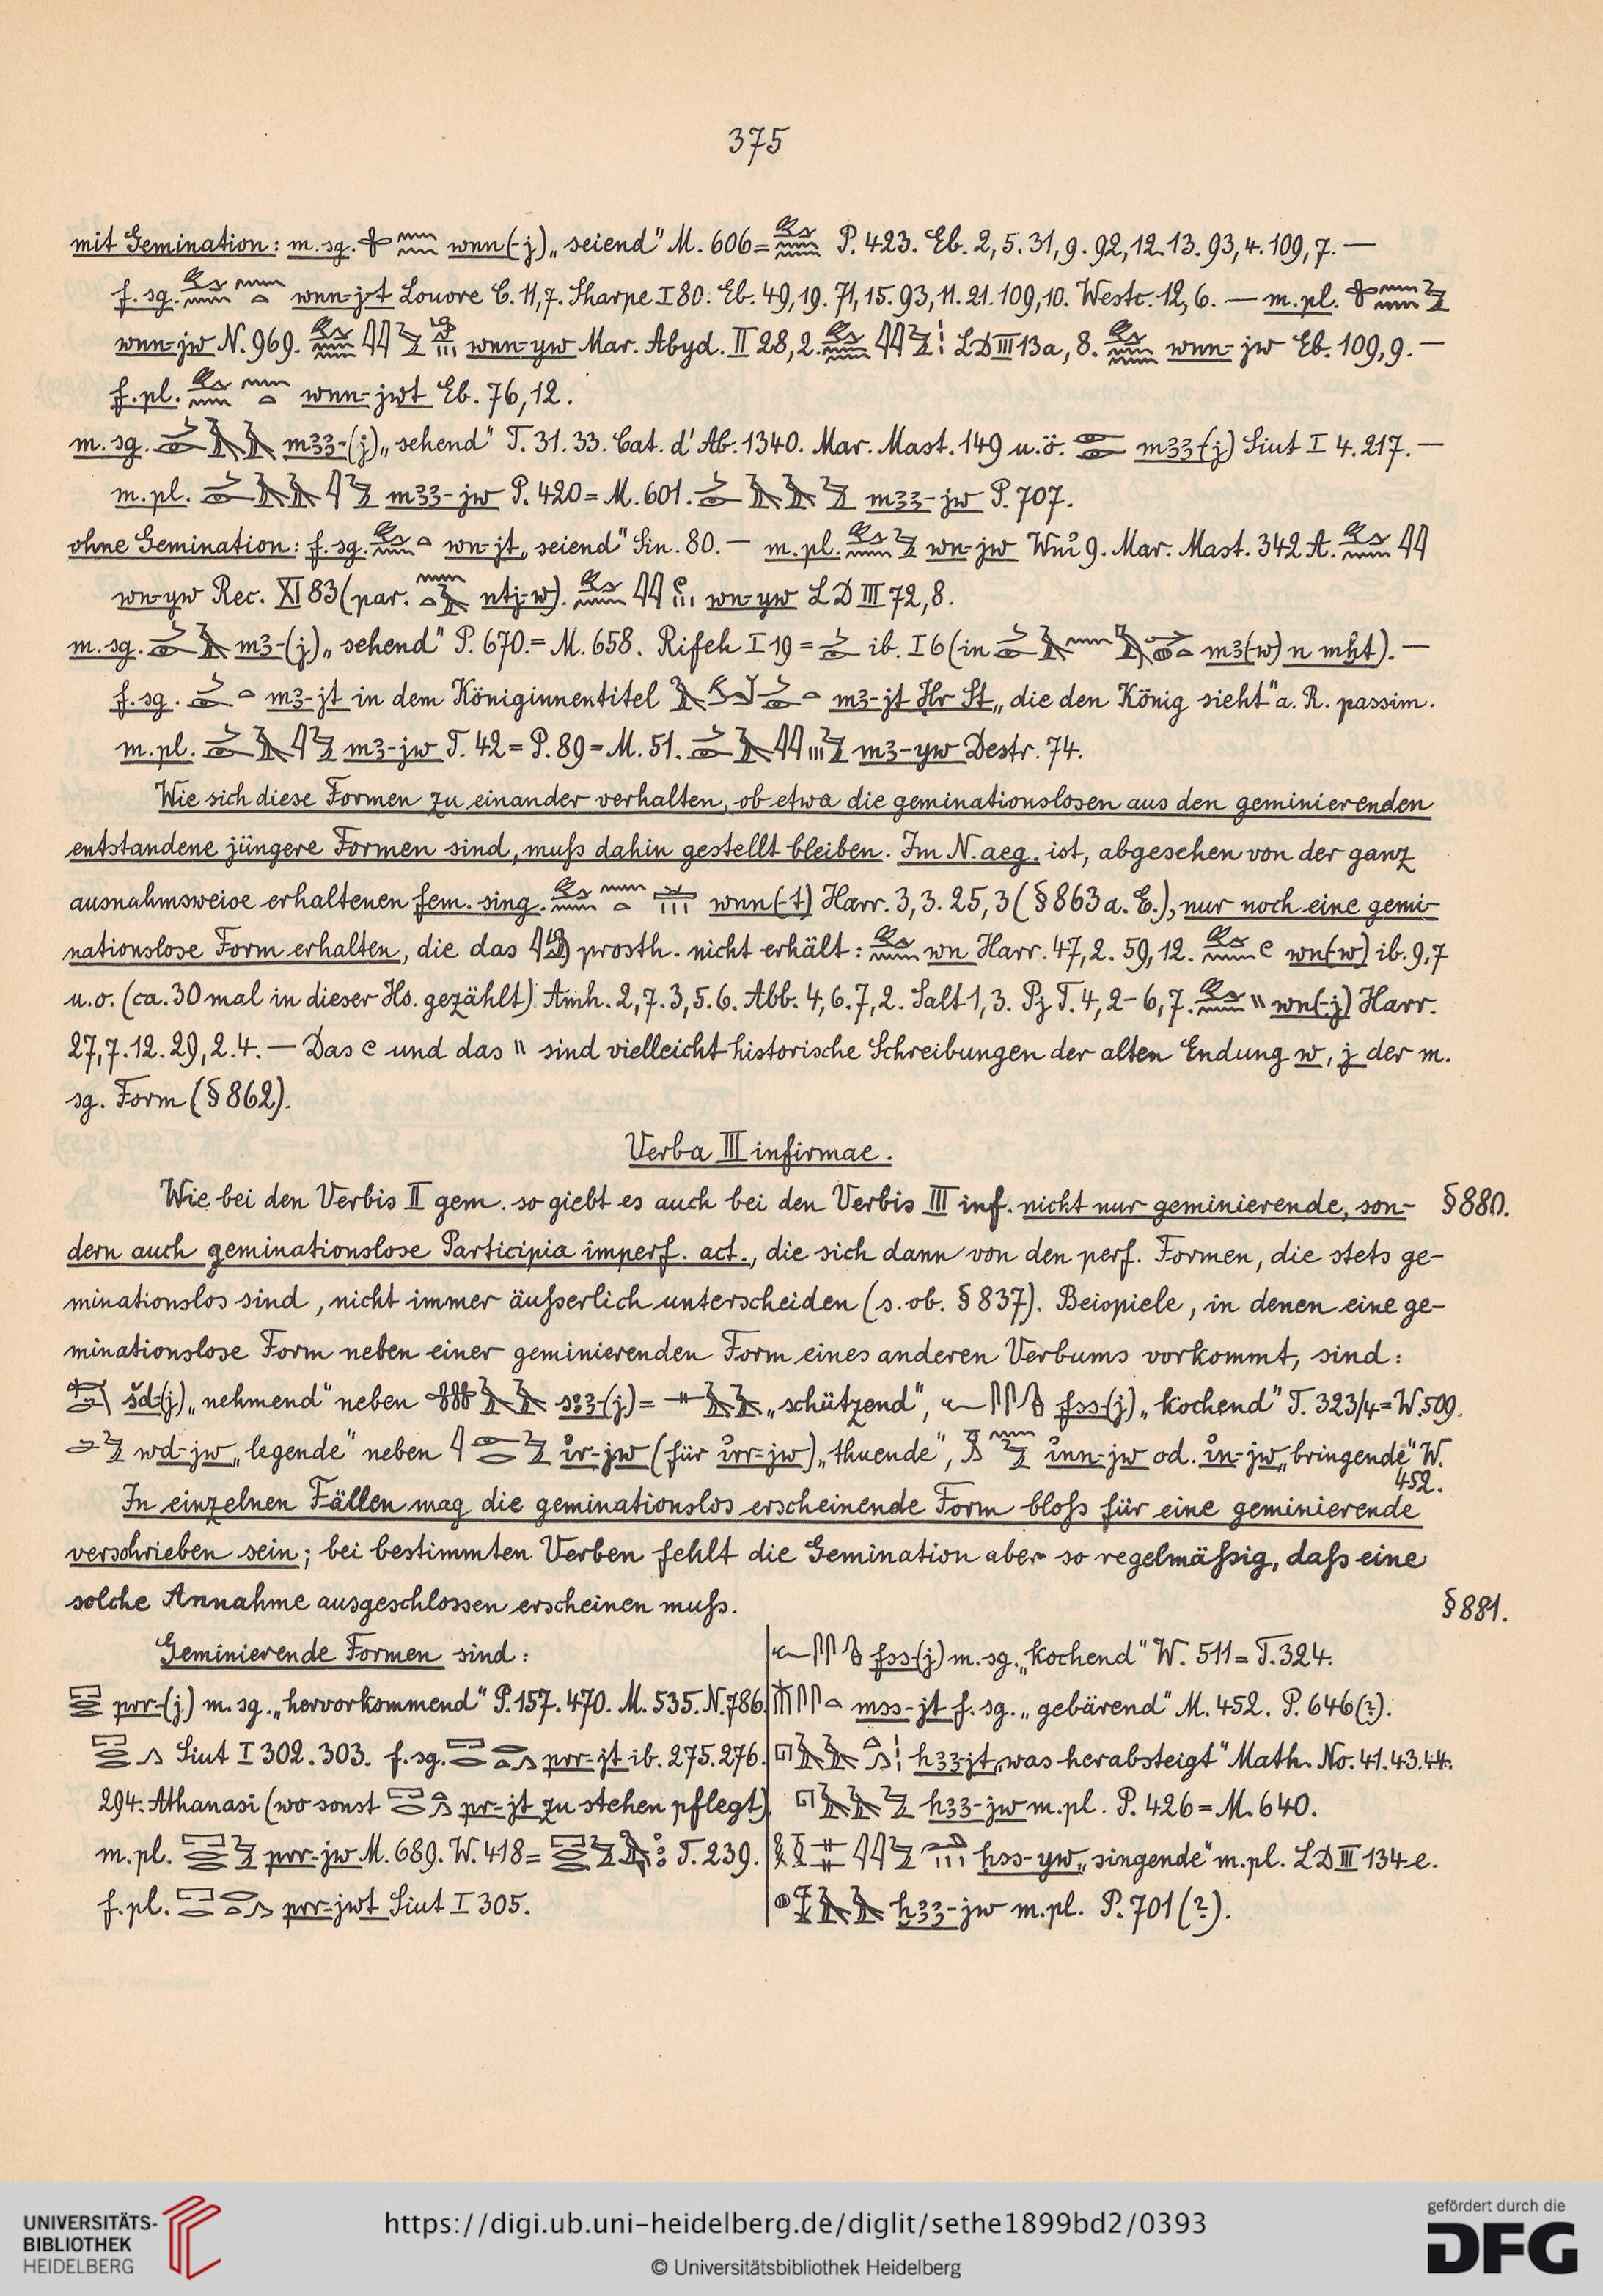 375
mit Gemination: m. sg. wnn(-j) „seiend" M. 606 = P. 423. Eb. 2,5. 31,9. 92,12. 13. 93,4. 109,7. —
f. sg. wnn-jt Louvre C. 11,7. Sharpe I 80. Eb. 49,19. 71,15. 93,11. 21. 109,10. Westc. 12,6. — m. pl.
wnn-jw N. 969. wnn-yw Mar. Abyd. II 28,2. LD III 13a, 8. wnn-jw Eb. 109,9. —
f. pl. wnn-jwt Eb. 76,12.
m. sg. m33-(j) „sehend" T. 31. 33. Cat. d'Ab. 1340. Mar. Mast. 149 u. ö. m33-(j) Siut I 4. 217. —
m. pl. m33-jw P. 420 = M. 601. m33-jw P. 707.
ohne Gemination: f. sg. wn-jt „seiend" Sin. 80. — m. pl. wn-jw Wni 9. Mar. Mast. 342 A.
wn-yw Rec. XI 83 (par. ntj-w). wn-yw LD III 72,8.
m. sg. m3-(j) „sehend" P. 670. = M. 658. Rifeh I 19 = ib. I 6 (in m3(-w) n mḫt). —
f. sg. m3-jt in dem Königinnentitel m3-jt Ḥr St „die den König sieht" a. R. passim.
m. pl. m3-jw T. 42 = P. 89 = M. 51. m3-yw Destr. 74.
Wie sich diese Formen zu einander verhalten, ob etwa die geminationslosen aus den geminierenden
entstandene jüngere Formen sind, muß dahin gestellt bleiben. Im N. aeg. ist, abgesehen von der ganz
ausnahmsweise erhaltenen fem. sing. wnn(-t) Harr. 3,3. 25,3 (§ 863 a. E.), nur noch eine gemi-
nationslose Form erhalten, die das prosth. nicht erhält: wn Harr. 47,2. 59,12. wn(-w) ib. 9,7
u. o. (ca. 30 mal in dieser Hs. gezählt). Amh. 2,7. 3,5. 6. Abb. 4,6. 7,2. Salt 1,3. Pj T. 4,2-6,7. wn(-j) Harr.
27,7. 12. 29,2. 4. — Das und das \\ sind vielleicht historische Schreibungen der alten Endung w, j der m.
sg. Form (§ 862).
Verba III infirmae.
Wie bei den Verbis II gem. so giebt es auch bei den Verbis III inf. nicht nur geminierende, son- § 880.
dern auch geminationslose Participia imperf. act., die sich dann von den perf. Formen, die stets ge-
minationslos sind, nicht immer äußerlich unterscheiden (s. ob. § 837). Beispiele, in denen eine ge-
minationslose Form neben einer geminierenden Form eines anderen Verbums vorkommt, sind:
šd-(j) „nehmend" neben = „schützend", fss-(j) „kochend" T. 323/4 = W. 509.
wd-jw „legende" neben ir-jw (für irr-jw) „thuende", inn-jw od. in-jw „bringende" W.
452.
In einzelnen Fällen mag die geminationslos erscheinende Form bloß für eine geminierende
verschrieben sein; bei bestimmten Verben fehlt die Gemination aber so regelmäßig, daß eine
solche Annahme ausgeschlossen erscheinen muß. § 881.
Geminierende Formen sind:
prr-(j) m. sg. „hervorkommend" P. 157. 470. M. 535. N. 786.
Siut I 302. 303. f. sg. prr-jt ib. 275. 276.
294. Athanasi (wo sonst pr-jt zu stehen pflegt).
m. pl. prr-jw M. 689. W. 418 = T. 239.
f. pl. prr-jwt Siut I 305.
fss-(j) m. sg. „kochend" W. 511 = T. 324.
mss-jt f. sg. „gebärend" M. 452. P. 646 (?).
h33-jt „was herabsteigt" Math. No. 41. 43. 44.
h33-jw m. pl. P. 426 = M. 640.
ḥss-yw „singende" m. pl. LD III 134 e.
ḫ33-jw m. pl. P. 701 (?).
UNIVERSITÄTS-
BIBLIOTHEK
HEIDELBERG
https://digi.ub.uni-heidelberg.de/diglit/sethe1899bd2/0393
© Universitätsbibliothek Heidelberg
gefördert durch die
DFG